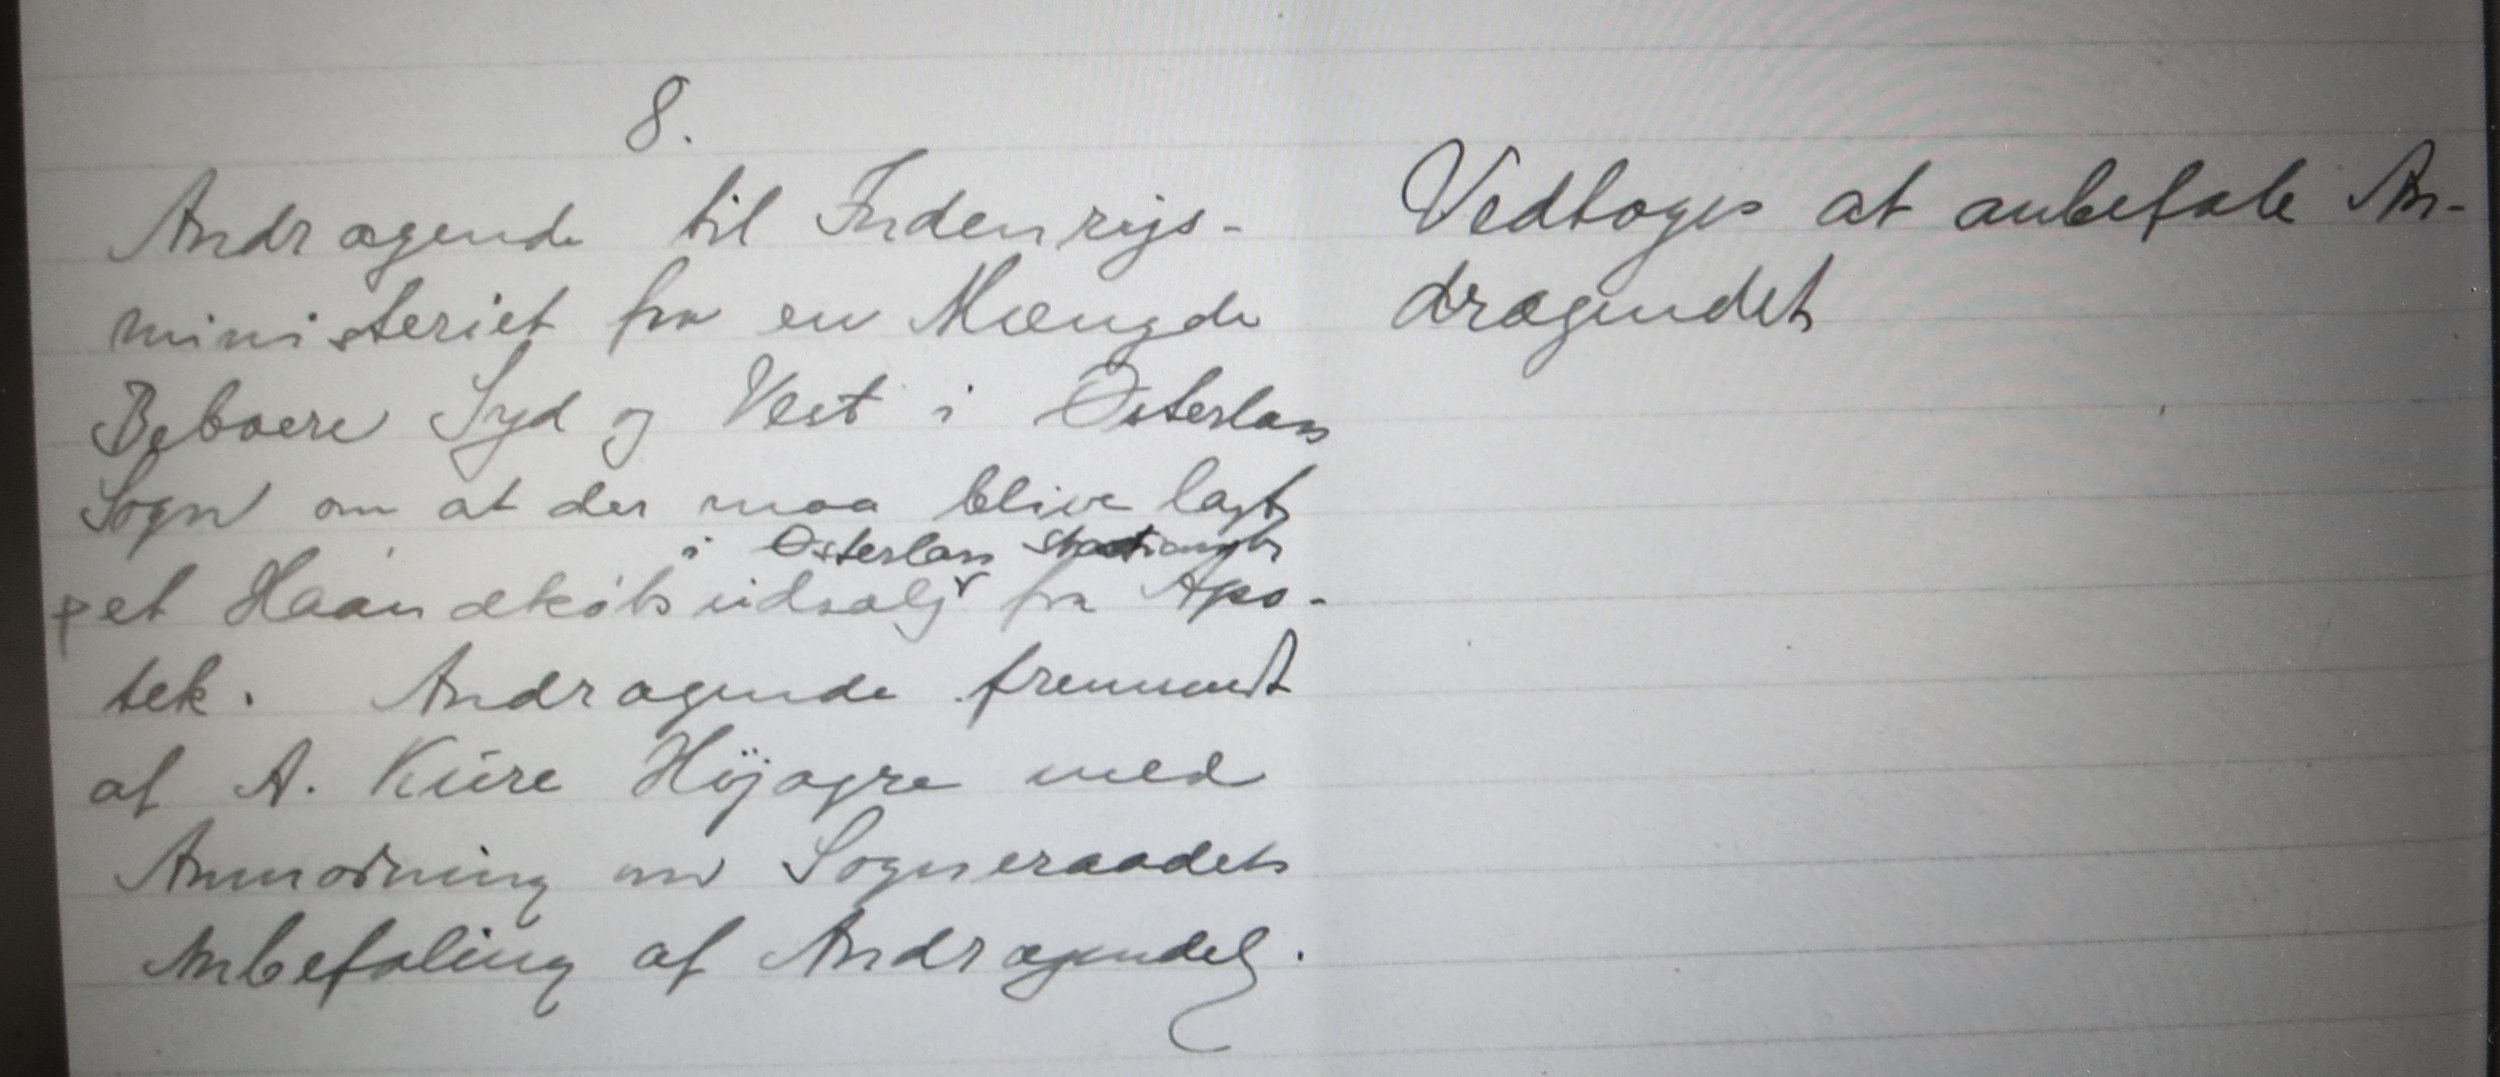 8.
Andragende til Indenrigs-
ministeriet fra en Mængde
Beboere Syd og Vest i Østerlars
Sogn om at der maa blive lagt
i Østerlars Stationsby
et Haandkøbsudsalg fra Apo-
tek. Andragende fremsendt
af A. Kure Höjagre med
Anmodning om Sogneraadets
Anbefaling af Andragendet.
Vedtoges at anbefale An-
dragendet